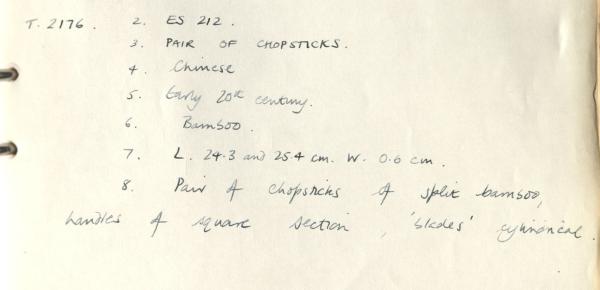 T. 2176. 2. ES 212.
3. PAIR OF CHOPSTICKS.
4. Chinese
5. Early 20th century.
6. Bamboo.
7. L. 24.3 and 25.4 cm. W. 0.6 cm.
8. Pair of chopsticks of split bamboo,
handles of square section, 'blades' cylindrical.